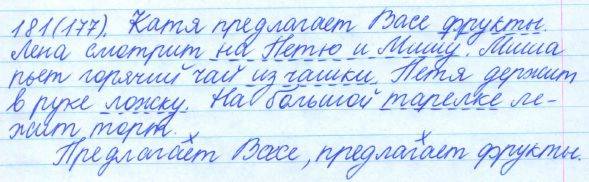 181(177). Катя предлагает Васе фрукты.
Лена смотрит на Петю и Мишу. Миша
пьет горячий чай из чашки. Петя держит
в руке ложку. На большой тарелке ле-
жит торт.
Предлагает Васе, предлагает фрукты.